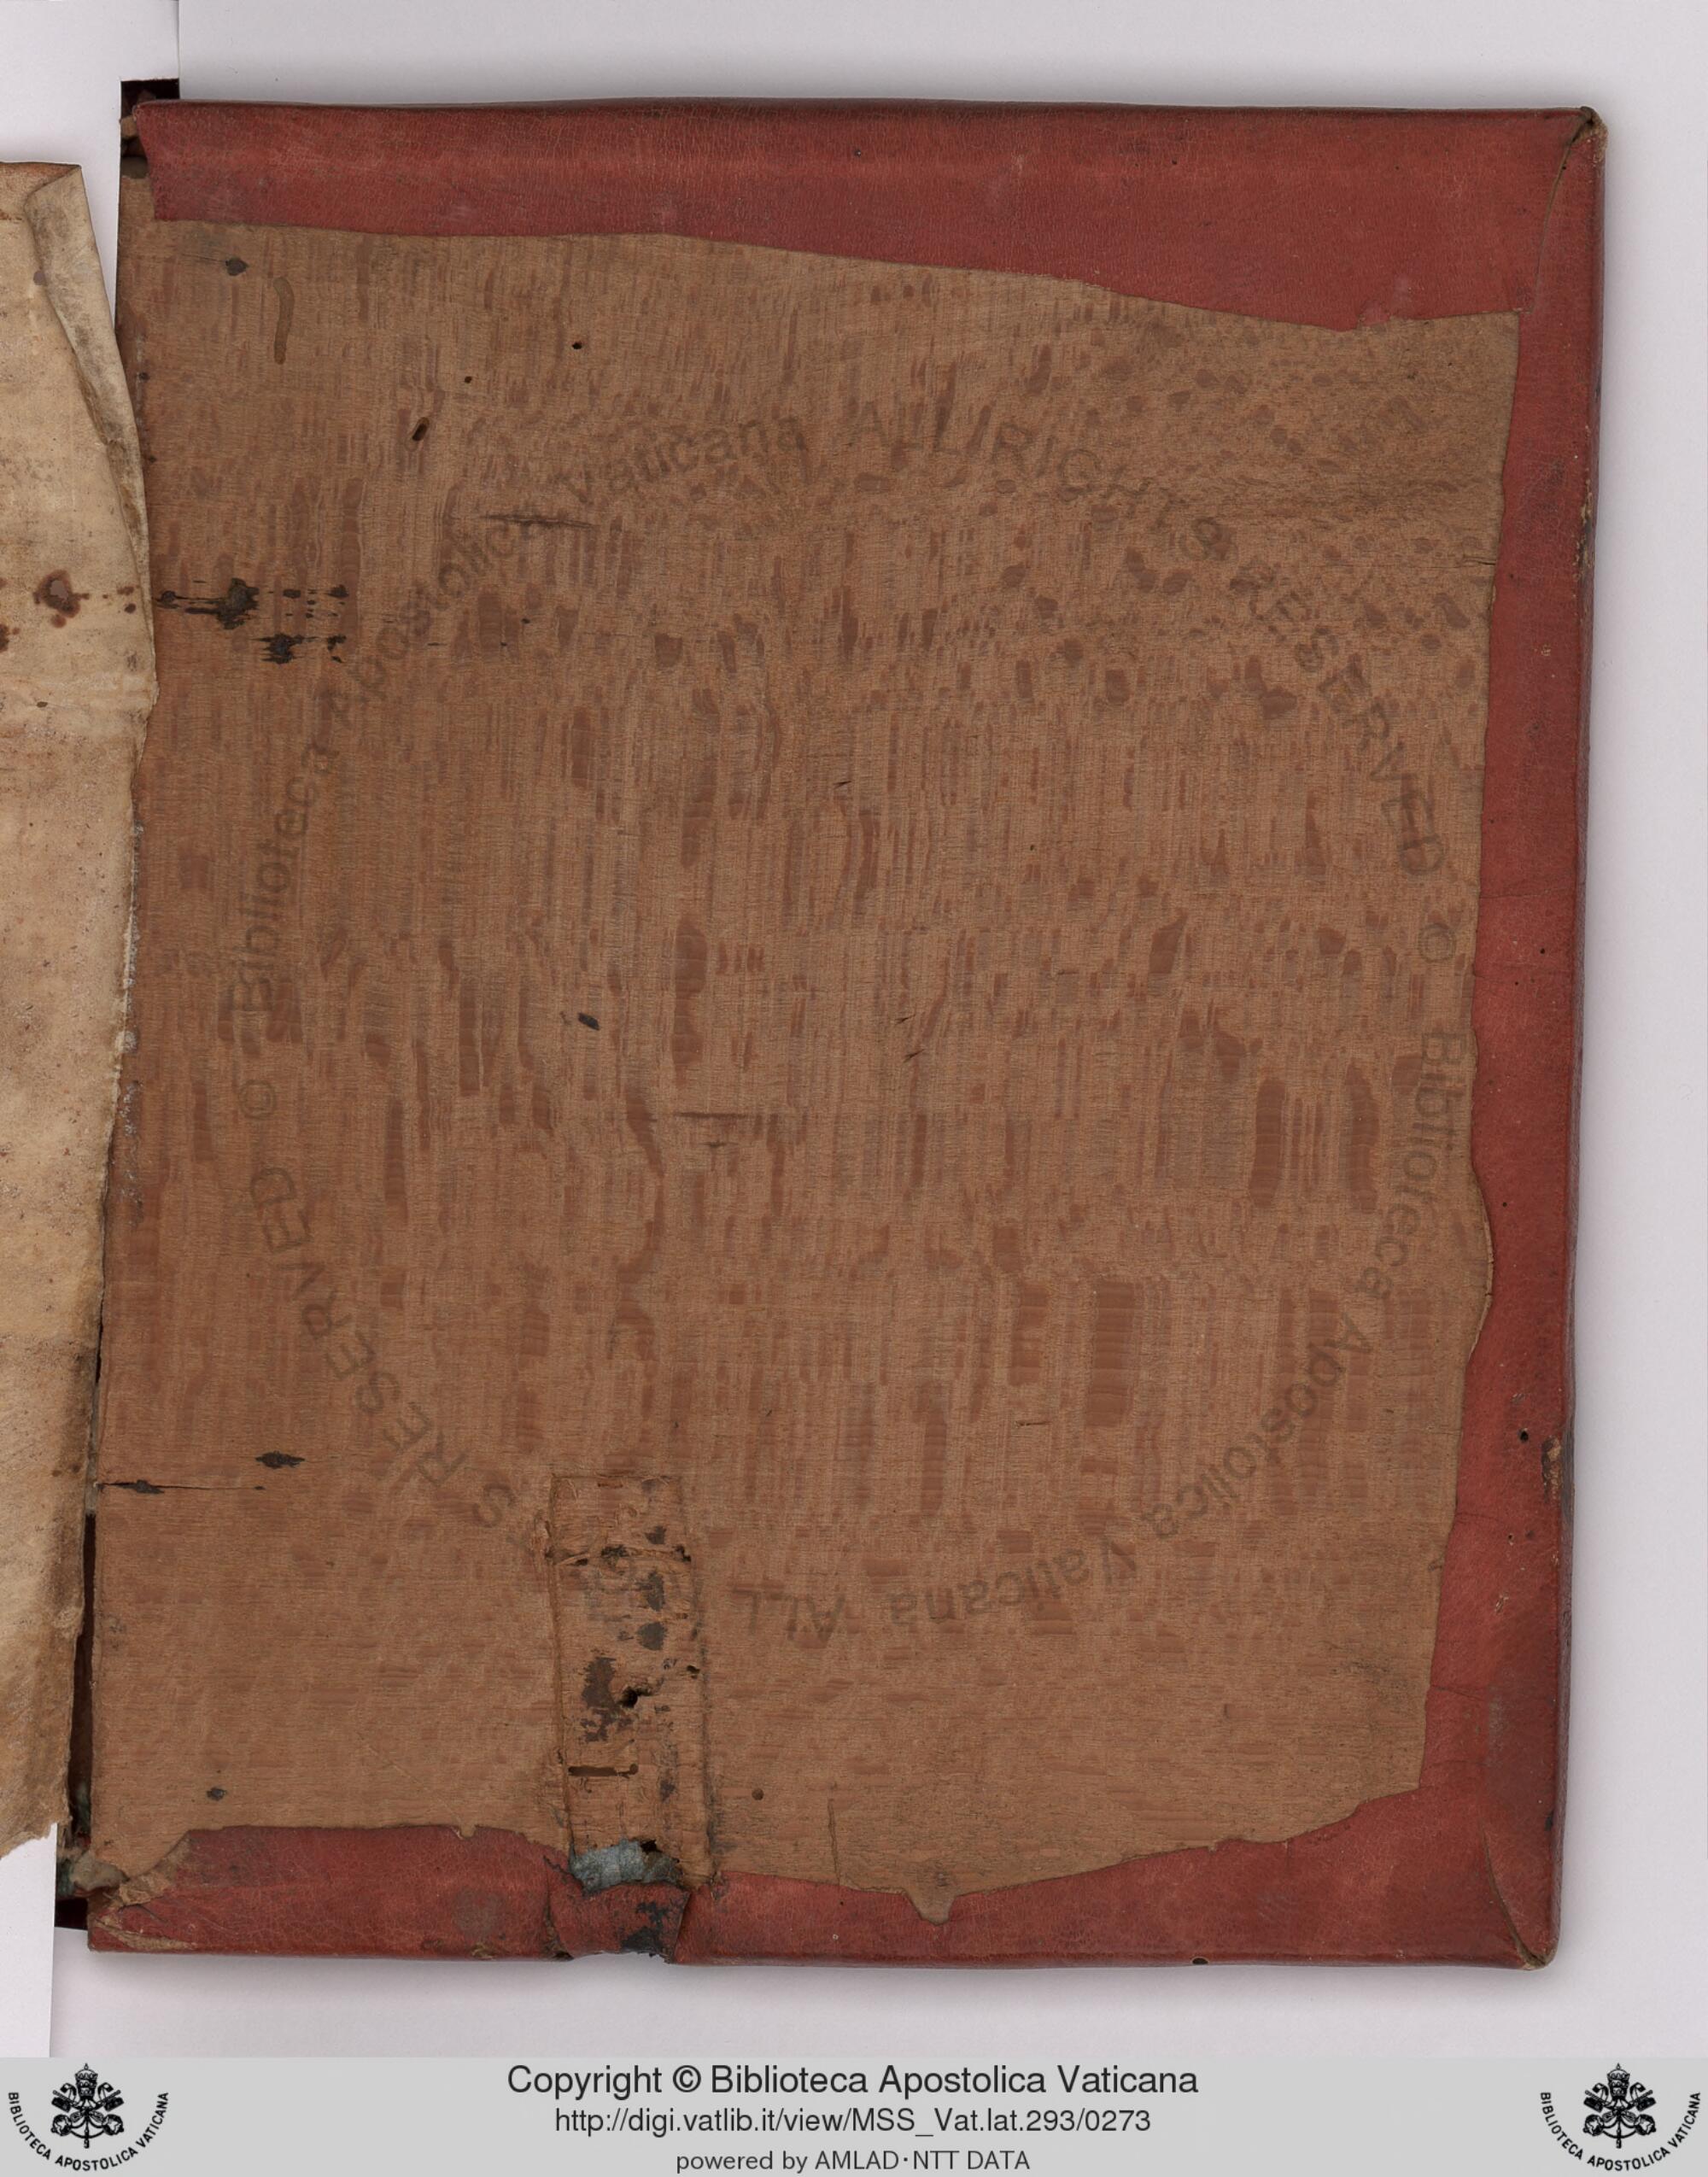 © Biblioteca Apostolica Vaticana ALL RIGHTS RESERVED © Biblioteca Apostolica Vaticana ALL RIGHTS RESERVED
Copyright © Biblioteca Apostolica Vaticana
http://digi.vatlib.it/view/MSS_Vat.lat.293/0273
powered by AMLAD·NTT DATA
BIBLIOTECA APOSTOLICA VATICANA
BIBLIOTECA APOSTOLICA VATICANA